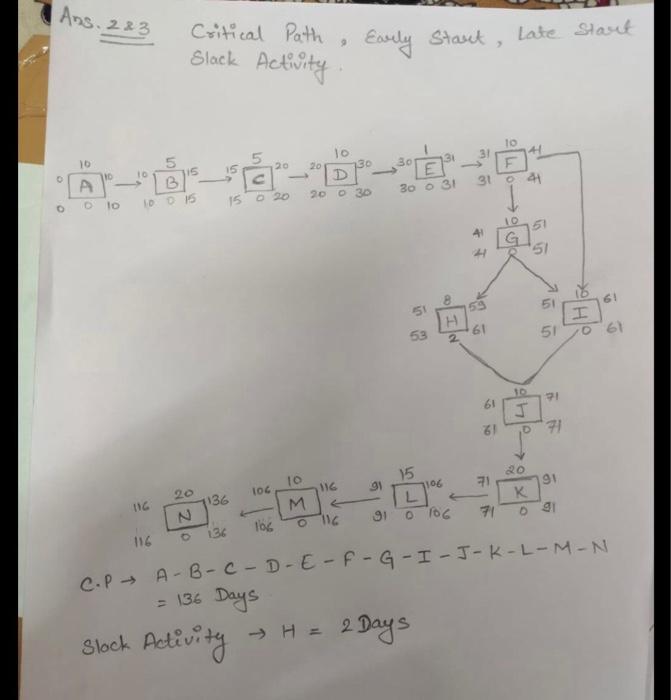 Ans. 2 & 3
Critical Path, Early Start, Late Start
Slack Activity.
10 5 5 10 1 10
0 A 10 10 B 15 15 C 20 20 D 30 30 E 31 31 F 41
0 0 10 10 0 15 15 0 20 20 0 30 30 0 31 31 0 41
10
41 G 51
41 0 51
8 10
51 H 59 51 I 61
53 2 61 51 0 61
10
61 J 71
61 0 71
20 10 15 20
116 N 136 106 M 116 91 L 106 71 K 91
116 0 136 106 0 116 91 0 106 71 0 91
C.P → A - B - C - D - E - F - G - I - J - K - L - M - N
= 136 Days
Slack Activity → H = 2 Days